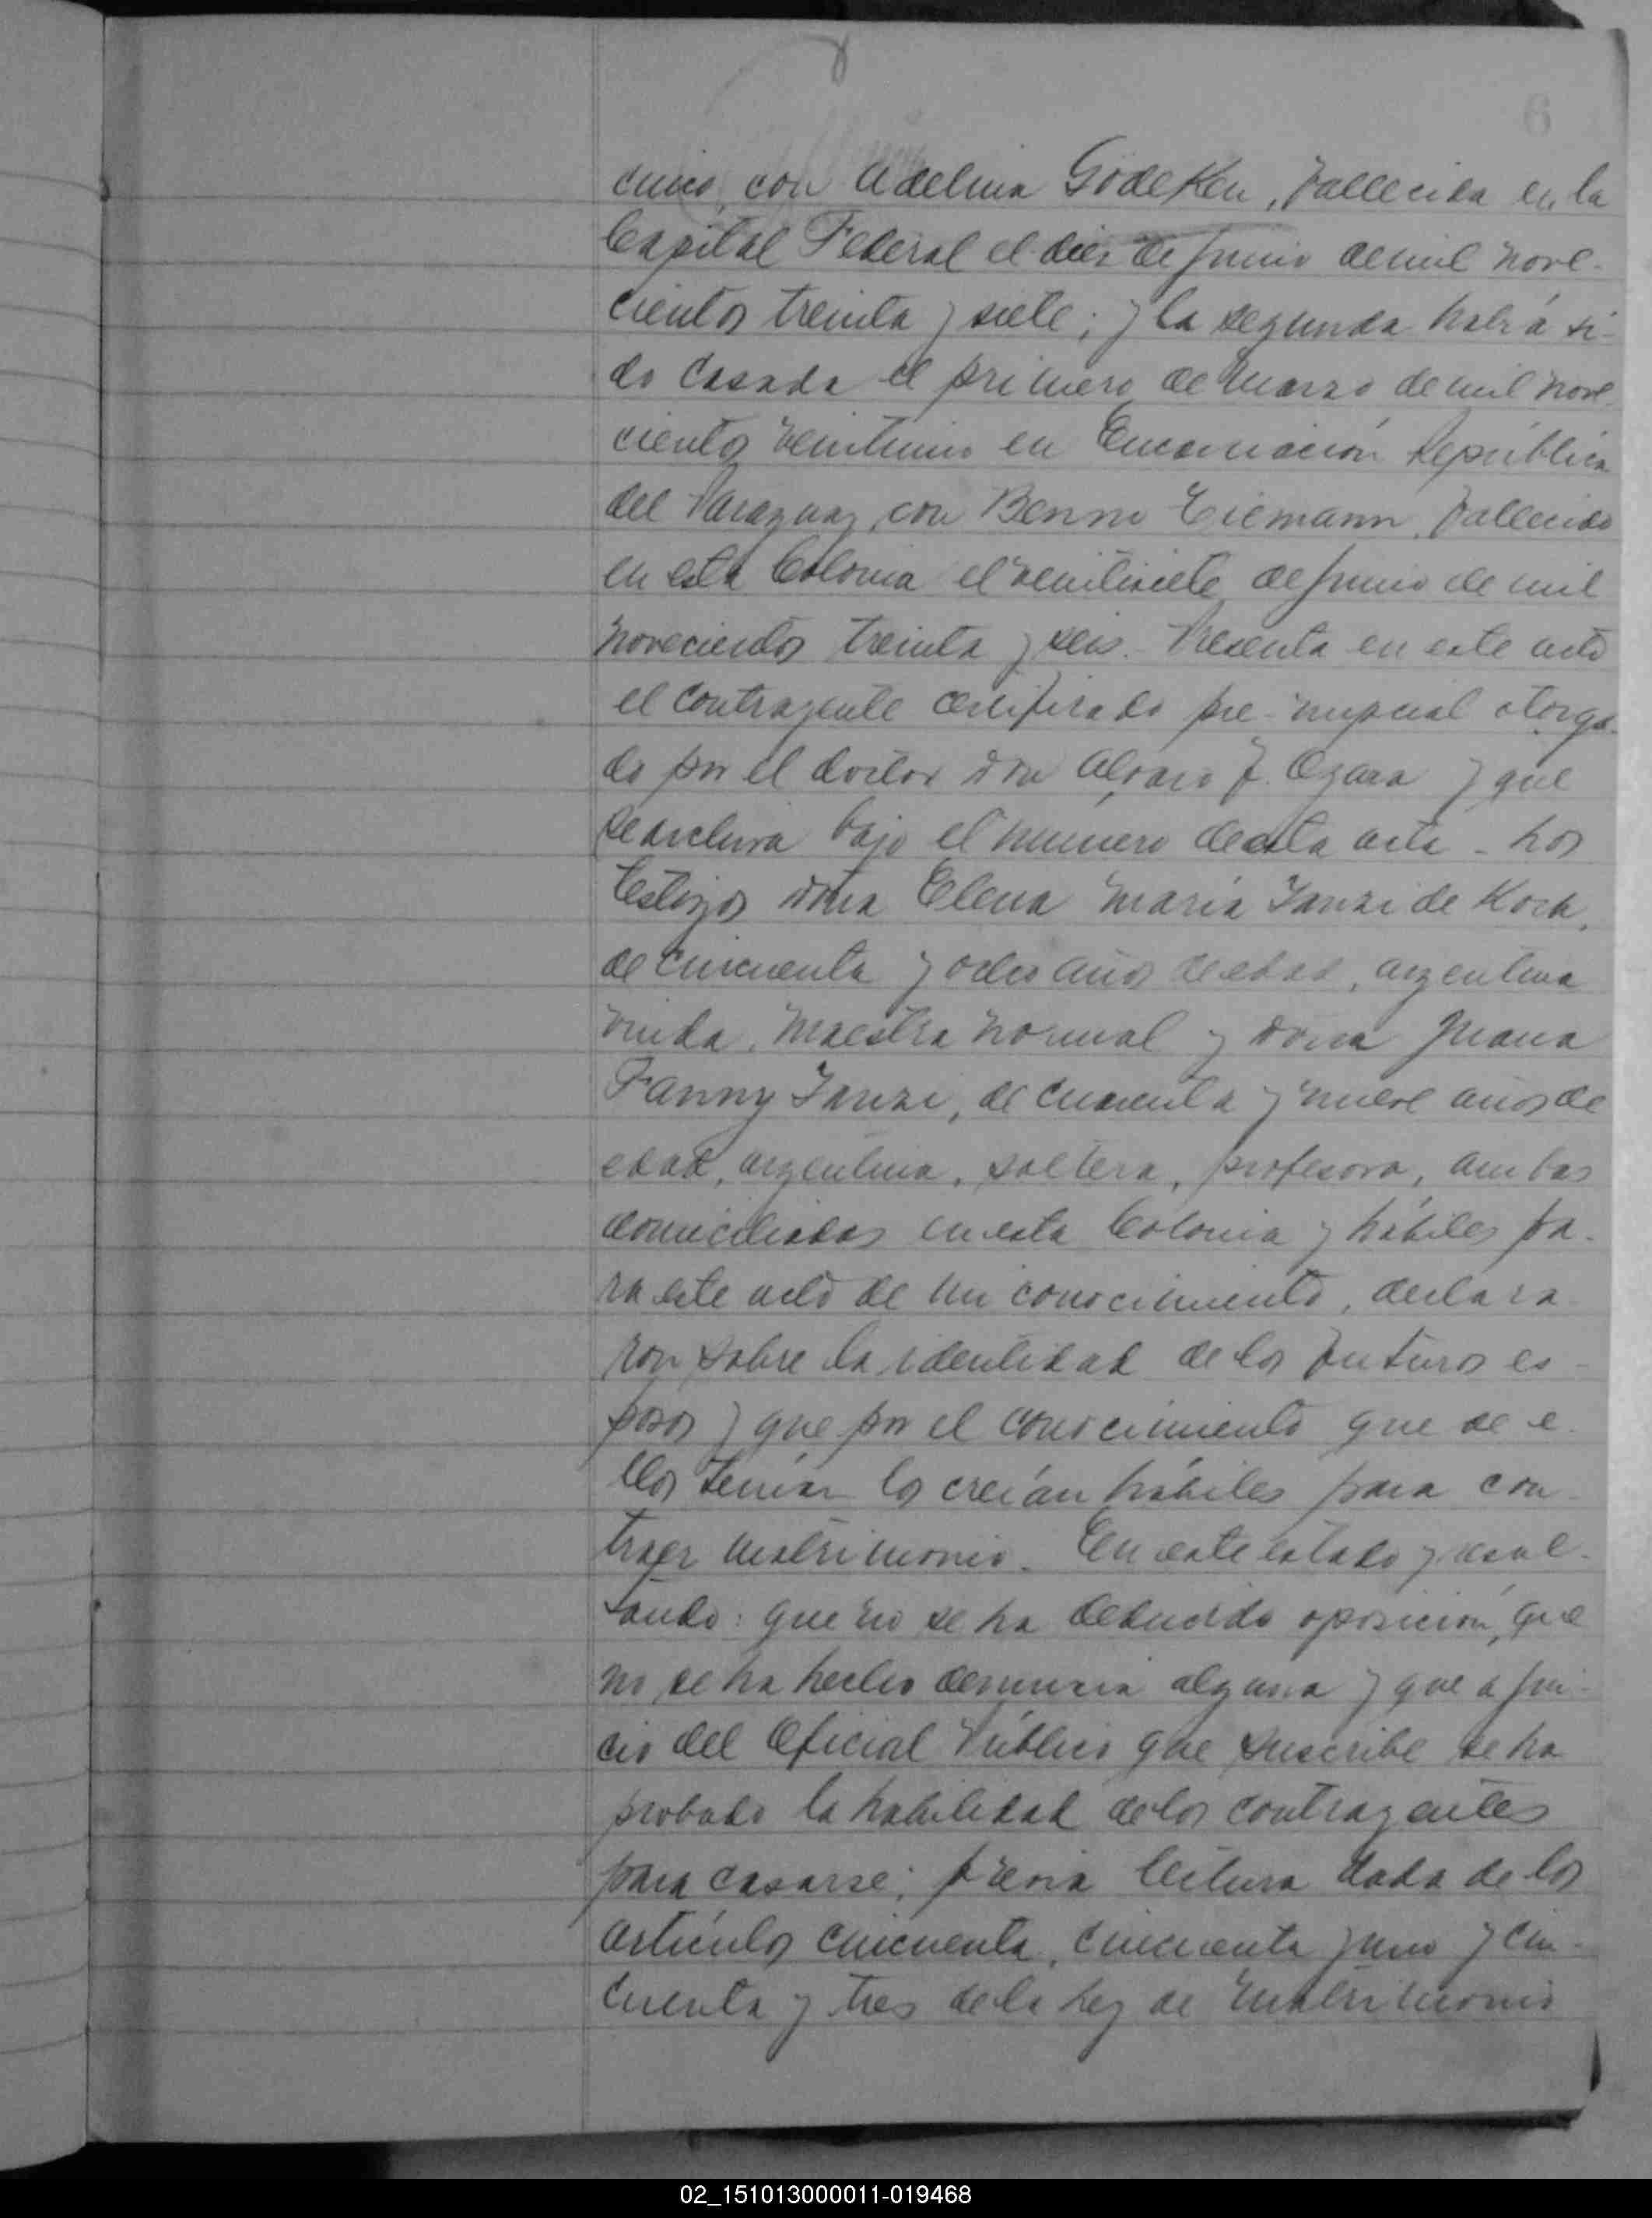 6
cinco, con Adelina Gödeken, fallecida en la
Capital Federal el diez de junio de mil nove-
cientos treinta y siete; y la segunda había si-
do casada el primero de marzo de mil nove-
cientos en Encarnación República
del Paraguay, con Benno Eiemann, fallecido
en esta Colonia el veintisiete de junio de mil
novecientos treinta y seis. Presenta en este acto
el contrayente certificado pre-nupcial otorga-
do por el doctor don Alvaro F. Ogara y que
se archiva bajo el número de esta acta - Los
testigos doña Elena María Yanzi de Koch,
de cincuenta y ocho años de edad, argentina
viuda, maestra normal y doña Juana
Fanny Yanzi, de cuarenta y nueve años de
edad, argentina, soltera, profesora, ambas
domiciliadas en esta Colonia y hábiles pa-
ra este acto de mi conocimiento, declara
ron sobre la identidad de los futuros es-
posos y que por el conocimiento que de e-
llos tenían los creían hábiles para con-
traer matrimonio. En este estado y resul-
tando: que no se ha deducido oposición, que
no se ha hecho denuncia alguna y que a jui-
cio del Oficial Público que suscribe se ha
probado la habilidad de los contrayentes
para casarse; previa lectura dada de los
artículos cincuenta, cincuenta y uno y cin-
cuenta y tres de la Ley de Matrimonio
02_151013000011-019468